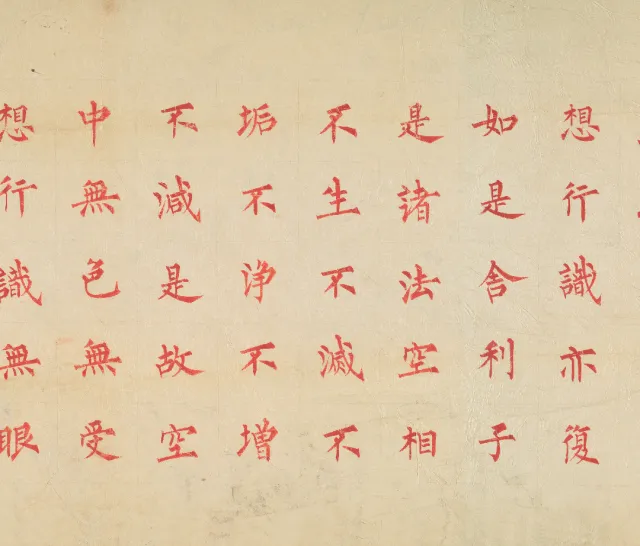 想行識亦復
如是舎利子
是諸法空相
不生不滅不
垢不浄不增
不減是故空
中無色無受
想行識無眼